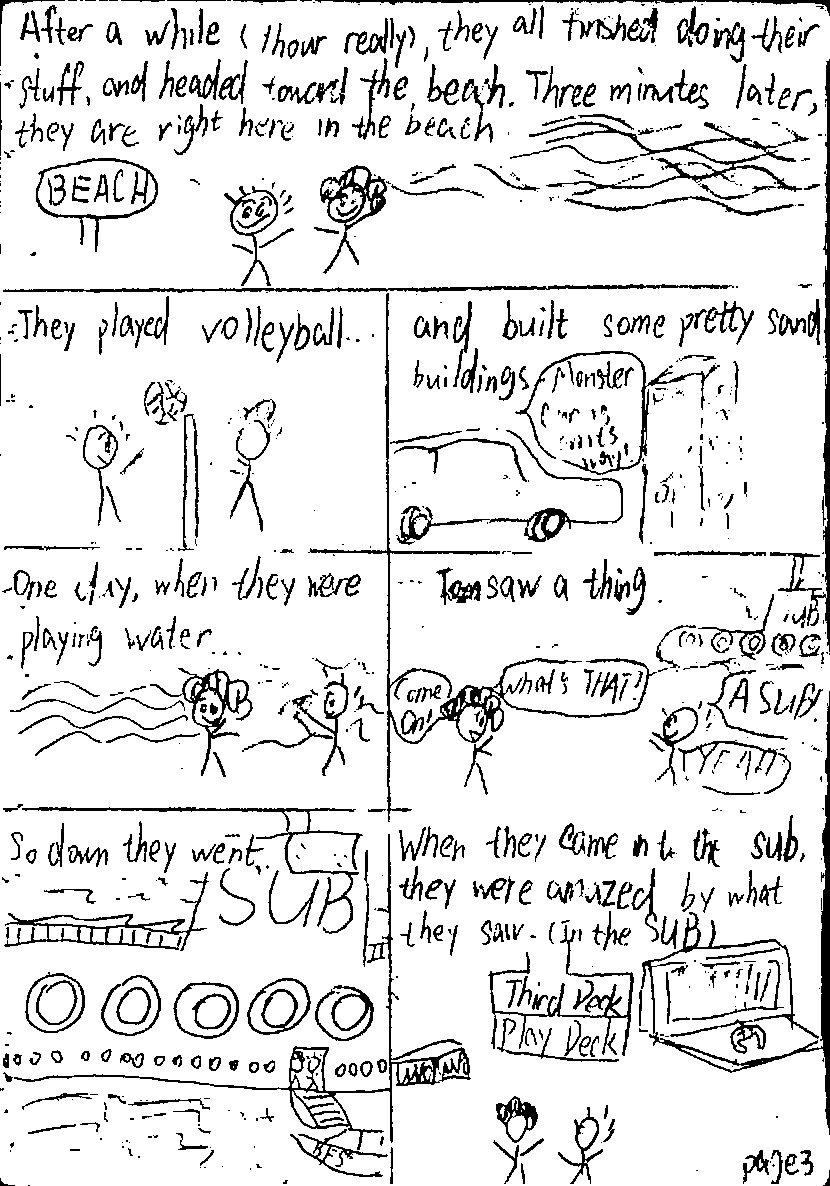 After a while (1hour really), they all finished doing their
stuff, and headed toward the beach. Three minutes later,
they are right here in the beach.
BEACH
They played volleyball...
and built some pretty sand
buildings.
Monster
Car is
way!
One day, when they were
playing water...
Tom saw a thing
SUB
Come
On!
What's THAT!
A SUB!
YEAH
So down they went...
SUB
When they came into the sub,
they were amazed by what
they saw. (In the SUB)
Third Deck
Play Deck
page3